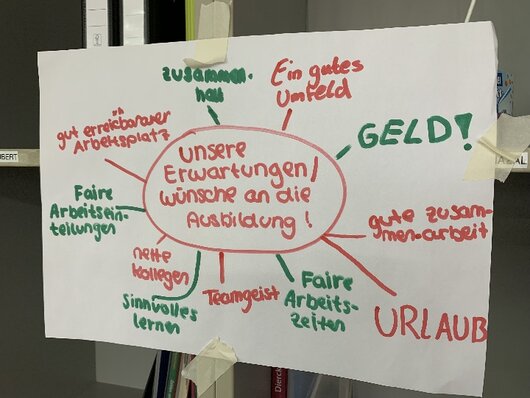 unsere
Erwartungen/
wünsche an die
Ausbildung!
zusammen-
halt
Ein gutes
Umfeld
GELD!
gute zusam-
menarbeit
URLAUB
Faire
Arbeits-
zeiten
Teamgeist
Sinnvolles
lernen
nette
kollegen
Faire
Arbeitsein-
teilungen
gut erreichbarer
Arbeitsplatz